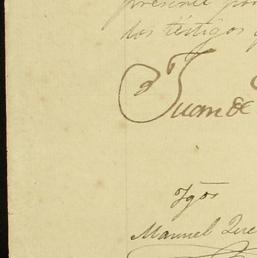 presente por
dos testigos
Juan de
Tgos
Manuel